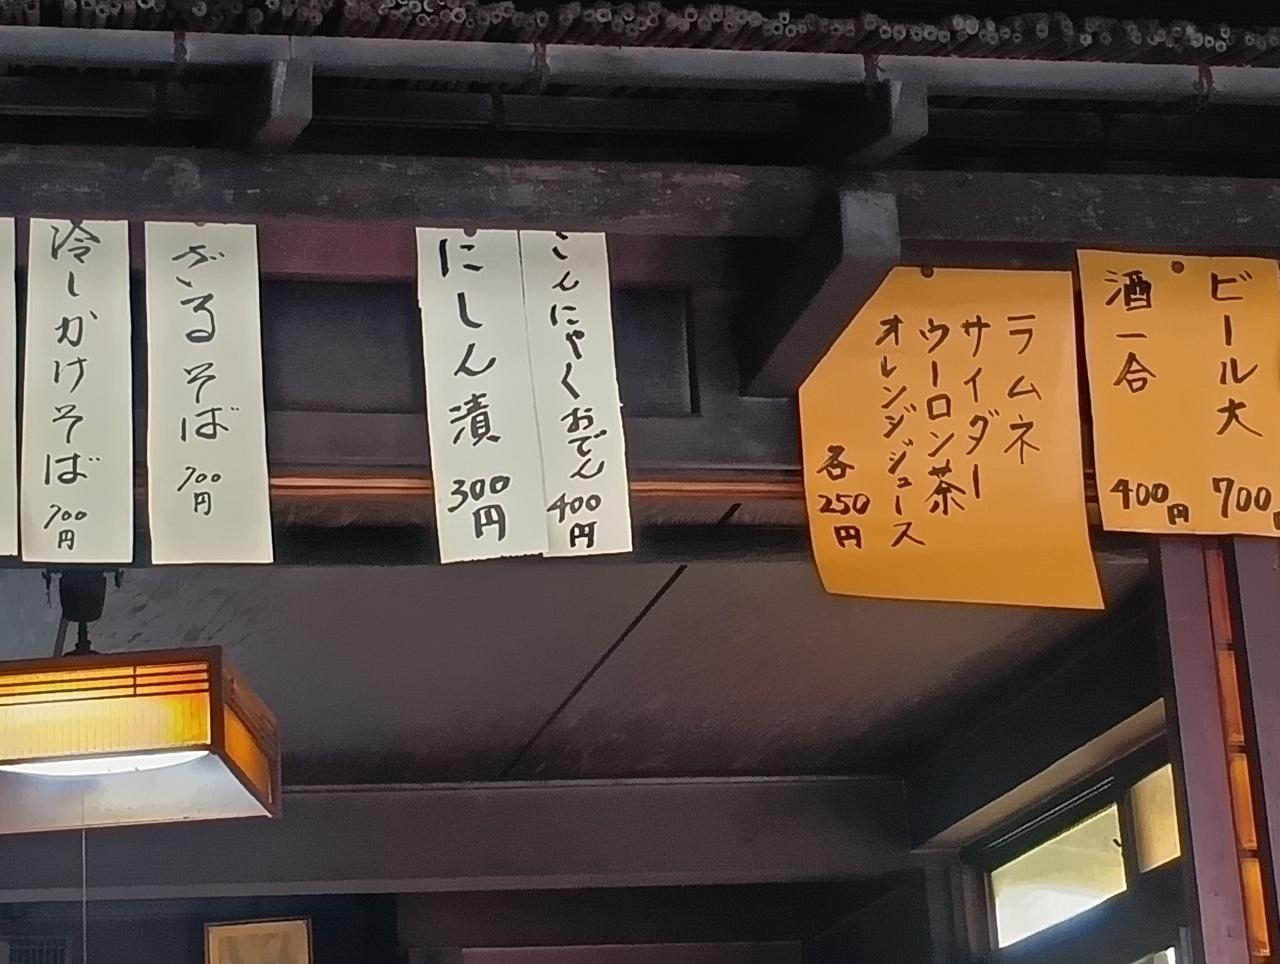 ビール大 700
酒一合 400円
ラムネ
サイダー
ウーロン茶
オレンジジュース
各250円
こんにゃくおでん 400円
にしん漬 300円
ざるそば 700円
冷しかけそば 700円